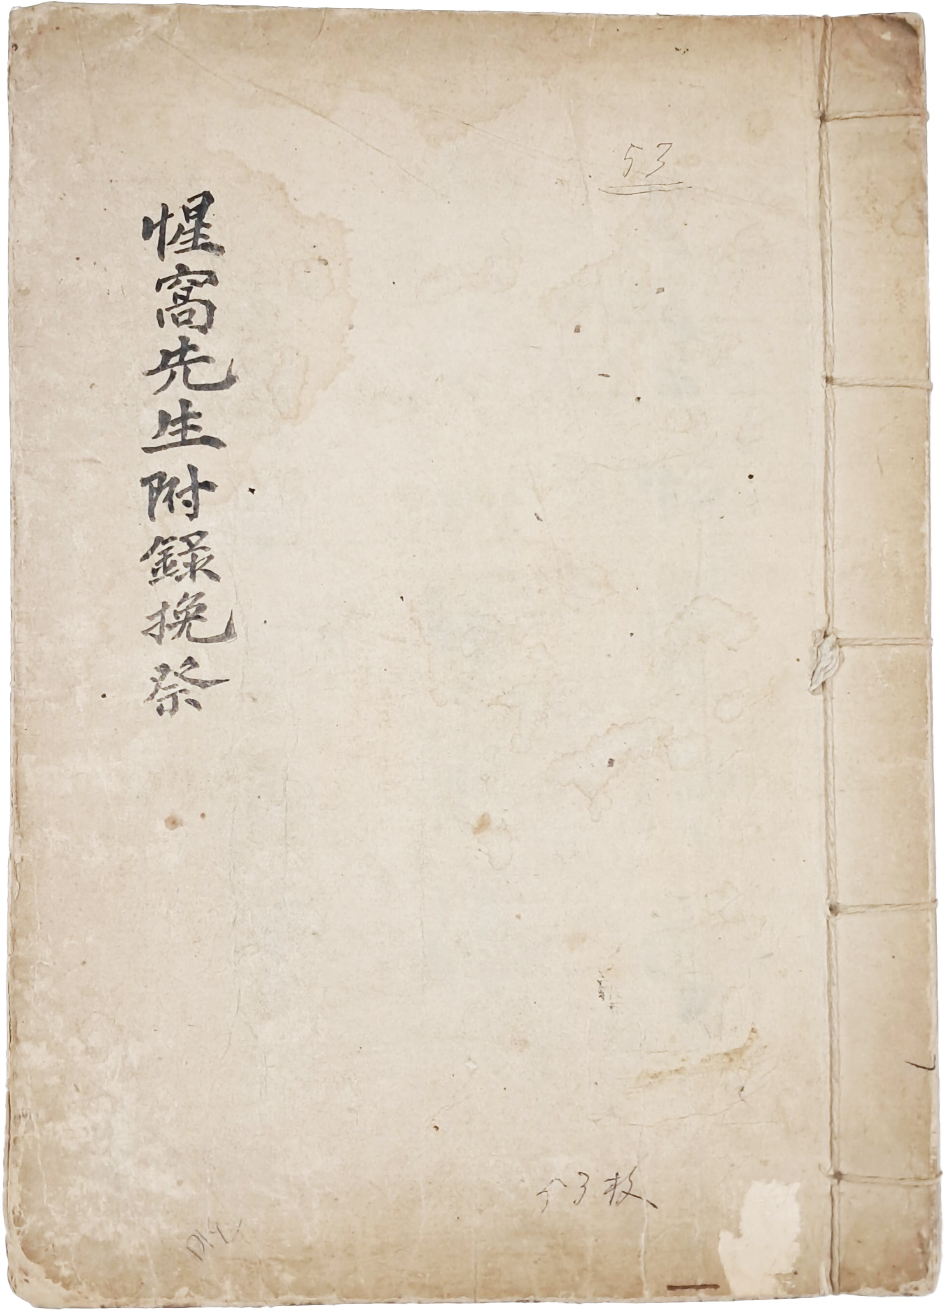 53
惺窩先生附錄挽祭
53枚